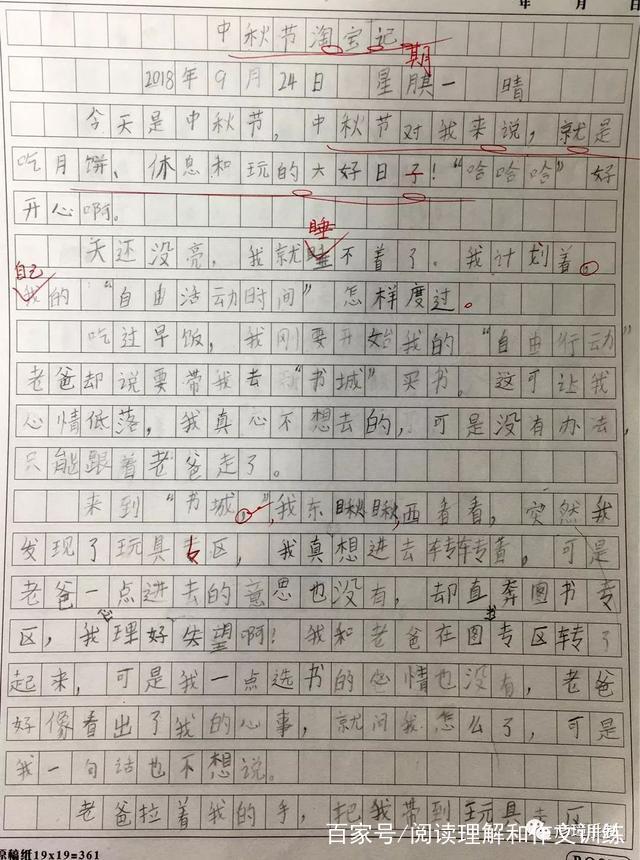 年 月 日
中秋节淘宝记
期
2018年9月24日 星期一 晴
今天是中秋节，中秋节对我来说，就是
吃月饼、休息和玩的大好日子！“哈哈哈”好
开心啊。
睡
天还没亮，我就睡不着了。我计划着
自己
我的“自由活动时间”怎样度过。
吃过早饭，我刚要开始我的“自由行动”
老爸却说要带我去“书城”买书。这可让我
心情低落，我真心不想去的，可是没有办法，
只能跟着老爸走了。
来到“书城”，我东瞅瞅，西看看，突然我
发现了玩具专区，我真想进去转转，可是
老爸一点进去的意思也没有，却直奔图书专
区，我心理好失望啊！我和老爸在图书专区转了
起来，可是我一点选书的心情也没有，老爸
好像看出了我的心事，就问我怎么了，可是
我一句话也不想说。
老爸拉着我的手，把我带到玩具专区
百家号/阅读理解和作文训练
原稿纸19x19=361